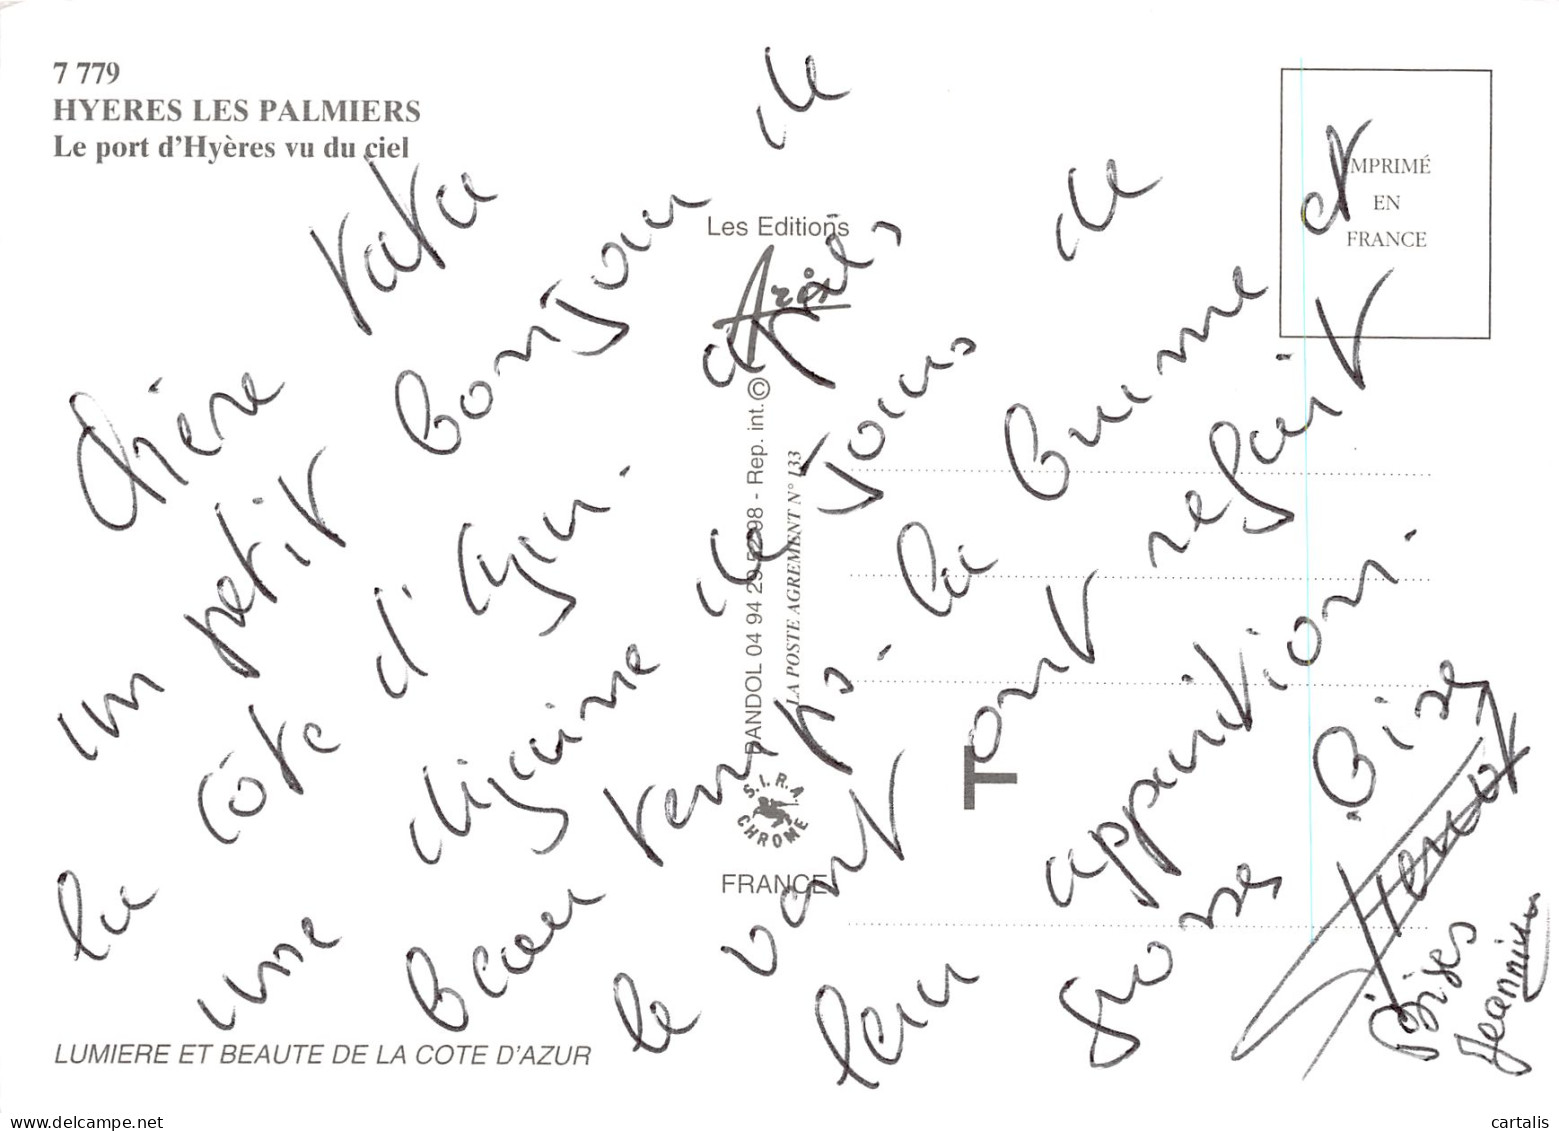 7 779
HYERES LES PALMIERS
Le port d'Hyères vu du ciel
Chère tata
un petit bonjour de
la côte d'Azur. après
une dizaine de jours de
beau temps. la brume et
le vent ont refait
leur apparition.
grosses Bises
Bises
Jeannine
Les Editions
BANDOL 04 94 29 52 98 - Rep. int. ©
LA POSTE AGREMENT N° 133
S.I.R.A
CHROME
FRANCE
T
IMPRIMÉ
EN
FRANCE
LUMIERE ET BEAUTE DE LA COTE D'AZUR
delcampe.net
cartalis